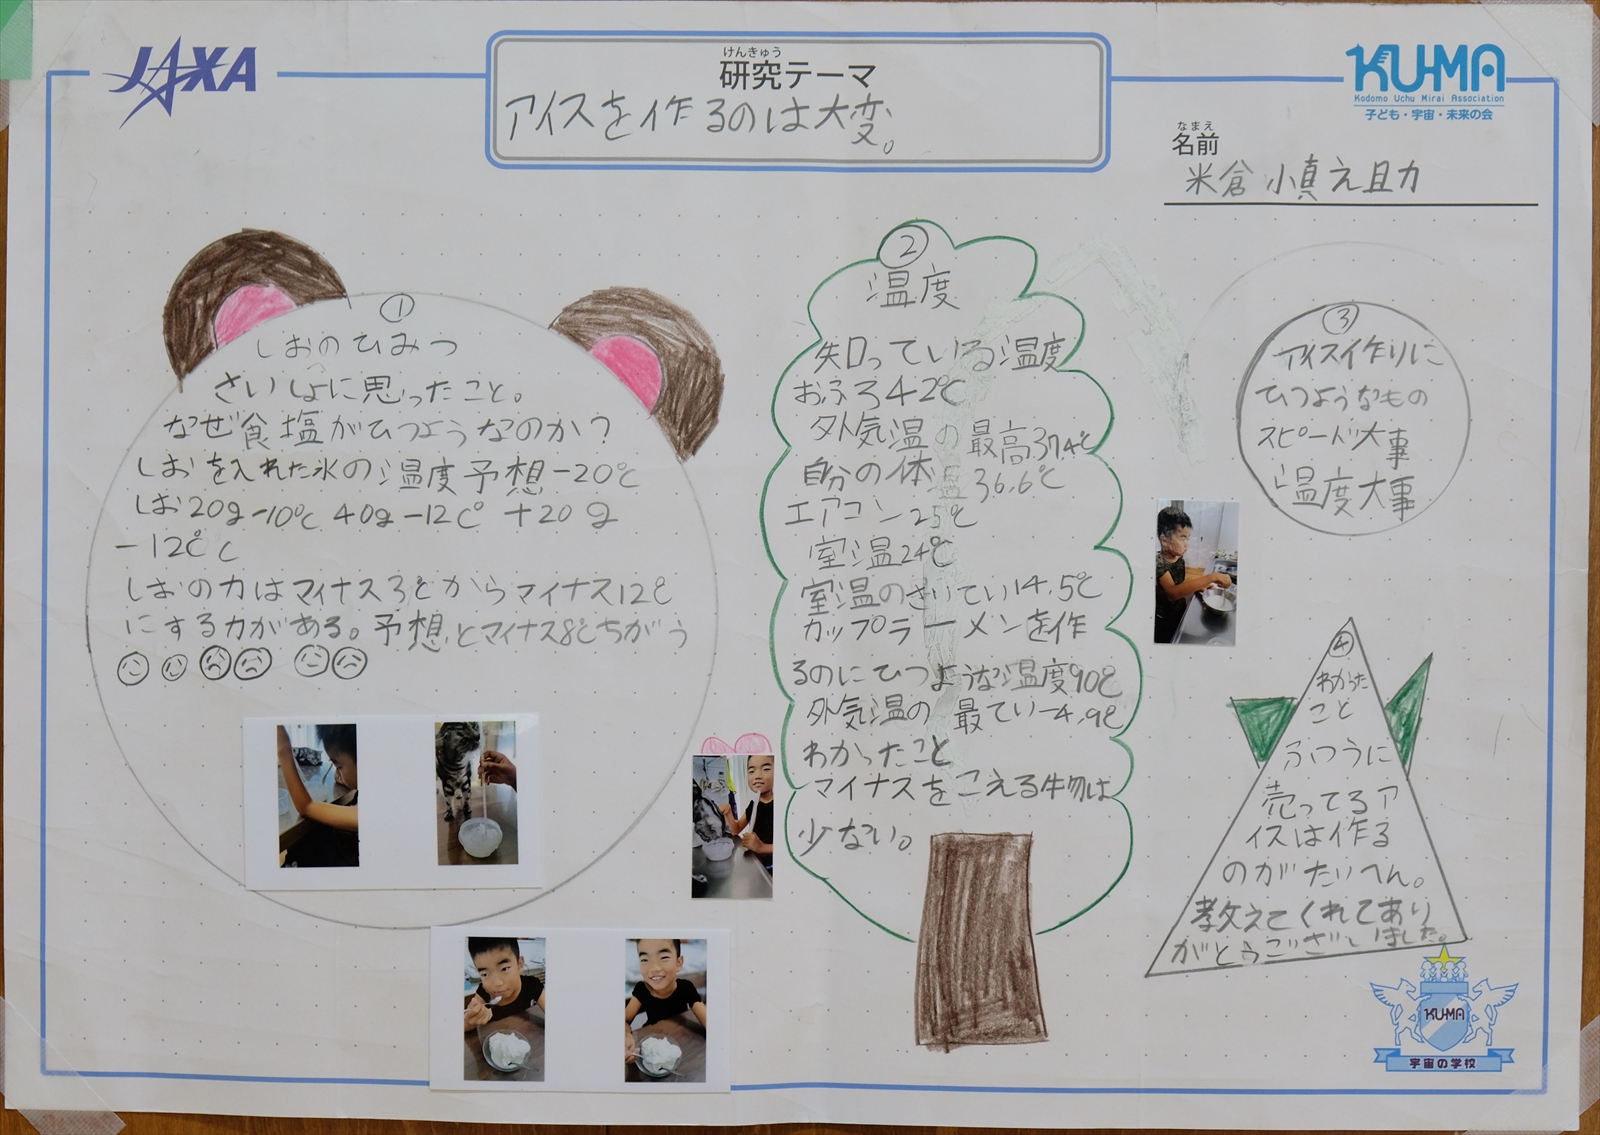 JAXA
けんきゅう
研究テーマ
アイスを作るのは大変。
KU-MA
Kodomo Uchu Mirai Association
子ども・宇宙・未来の会
なまえ
名前
米倉
①
しおのひみつ
さいしょに思ったこと。
なぜ食塩がひつようなのか?
しおを入れた氷の温度予想-20℃
しお20g-10℃ 40g-12℃ +20g
-12℃
しおの力はマイナス3℃からマイナス12℃
にする力がある。予想とマイナス8℃ちがう
②
温度
知っている温度
おふろ42℃
外気温の最高37.4℃
自分の体温36.6℃
エアコン25℃
室温24℃
室温のさいてい14.5℃
カップラーメンを作
るのにひつような温度90℃
外気温の最てい-4.9℃
わかったこと
マイナスをこえる生物は
少ない。
③
アイス作りに
ひつようなもの
スピード大事
温度大事
④
わかった
こと
ふつうに
売ってるア
イスは作る
のがたいへん。
教えてくれてあり
がとうございました。
KU-MA
宇宙の学校